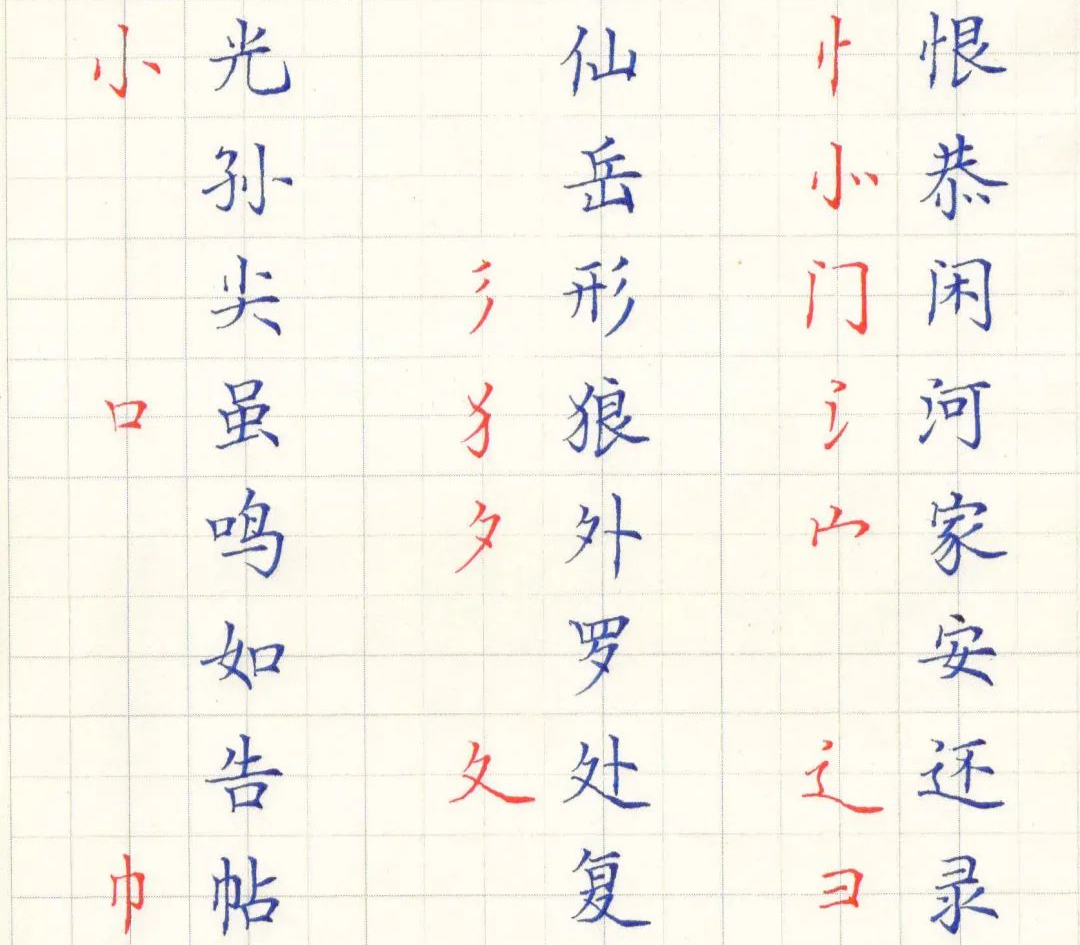 小 光 仙 忄 恨
孙 岳 㣺 恭
尖 彡 形 门 闲
口 虽 犭 狼 氵 河
鸣 夕 外 宀 家
如 罗 安
告 夂 处 辶 还
巾 帖 复 彐 录